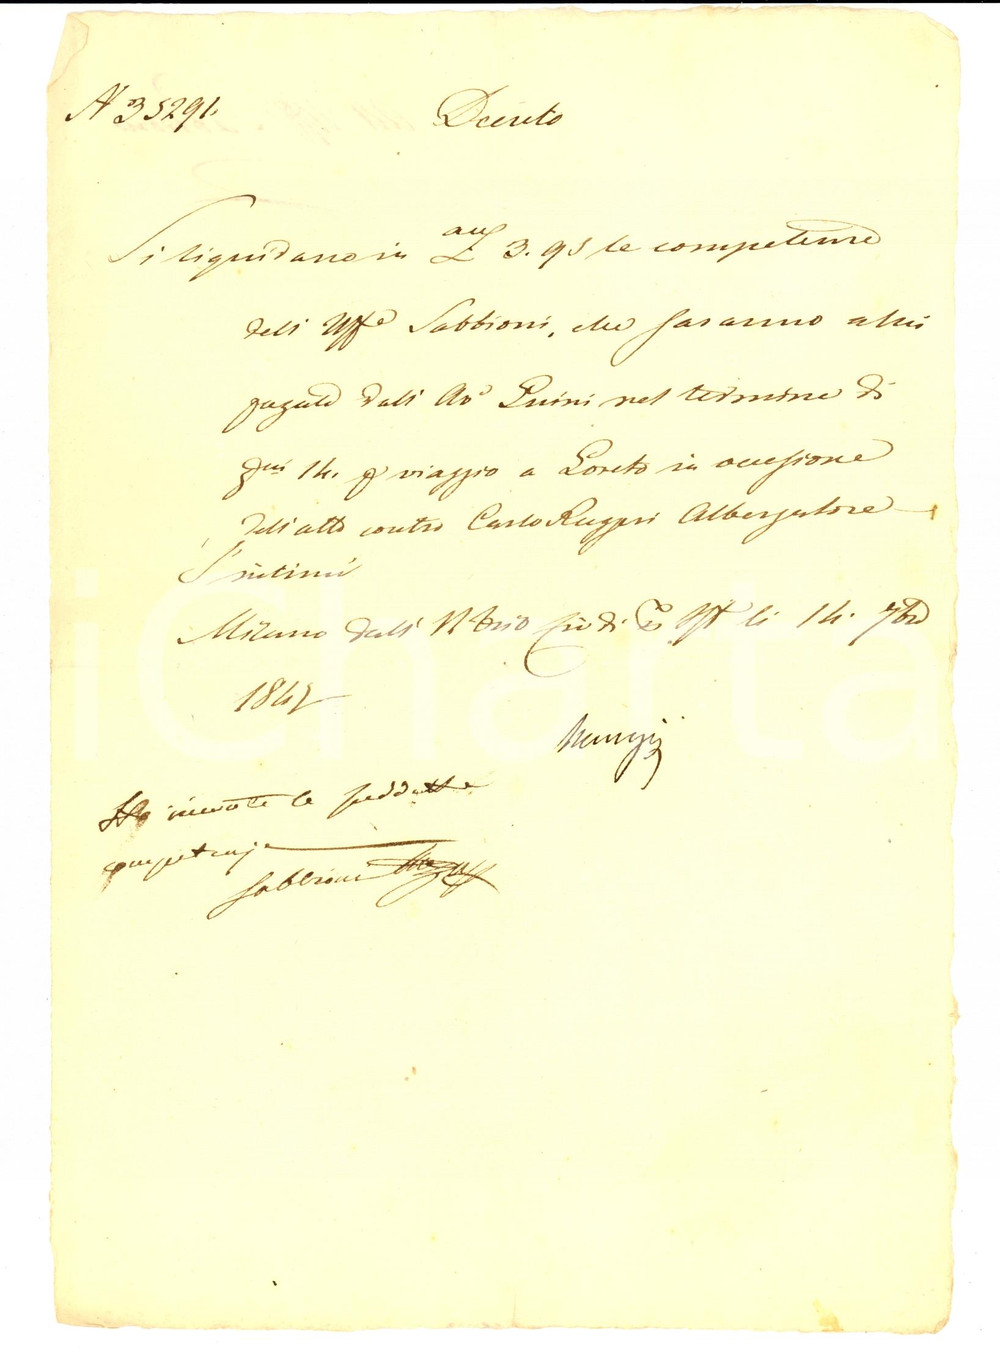 N 35291.
Decreto
Si liquidano in au£ 3.95 le competenze
dell' Uffe Sabbioni, che saranno a lui
pagate dall' Avo Guini nel termine di
gni 14. p viaggio a Loreto in occasione
dell'atto contro Carlo Ruggeri Albergatore
S'intimi
Milano dall' li 14. 7bre
184
Ho ricevute le suddette
competenze
Sabbioni
iCharta